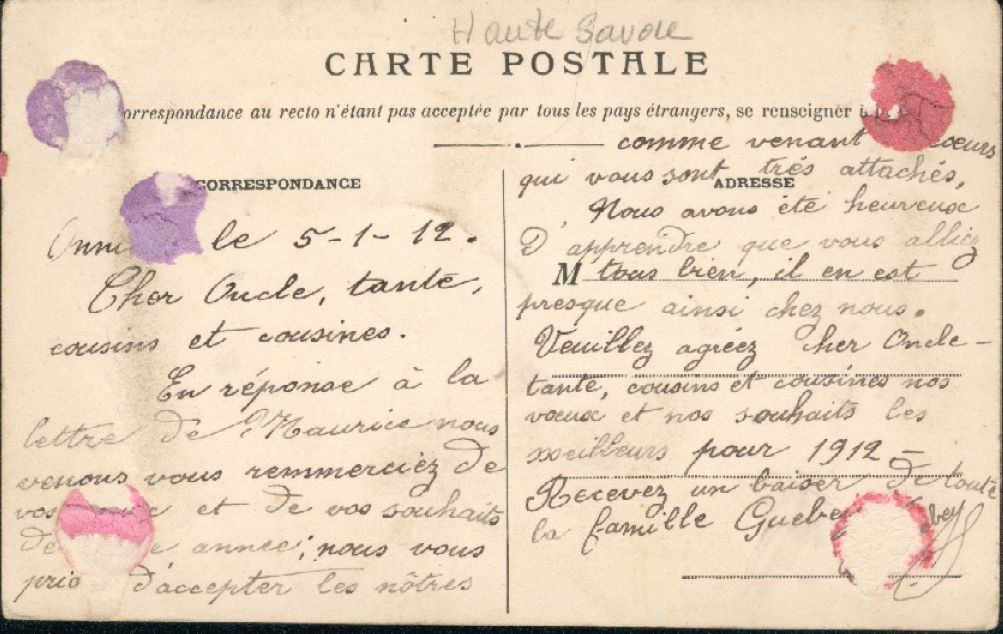 Haute Savoie
CARTE POSTALE
orrespondance au recto n'étant pas acceptée par tous les pays étrangers, se renseigner
CORRESPONDANCE
le 5-1-12.
Cher Oncle, tante,
cousins et cousines.
En réponse à la
lettre de Maurice nous
venons vous remmerciez de
vos et de vos souhaits
de année; nous vous
prio d'accepter les nôtres
comme venant coeurs
qui vous sont trés attachés,
ADRESSE
Nous avons été heureux
D'apprendre que vous alliez
M tous bien, il en est
presque ainsi chez nous.
Veuillez agréez cher Oncle-
tante, cousins et cousines nos
voeux et nos souhaits les
meilleurs pour 1912-
Recevez un baiser de toute
la famille